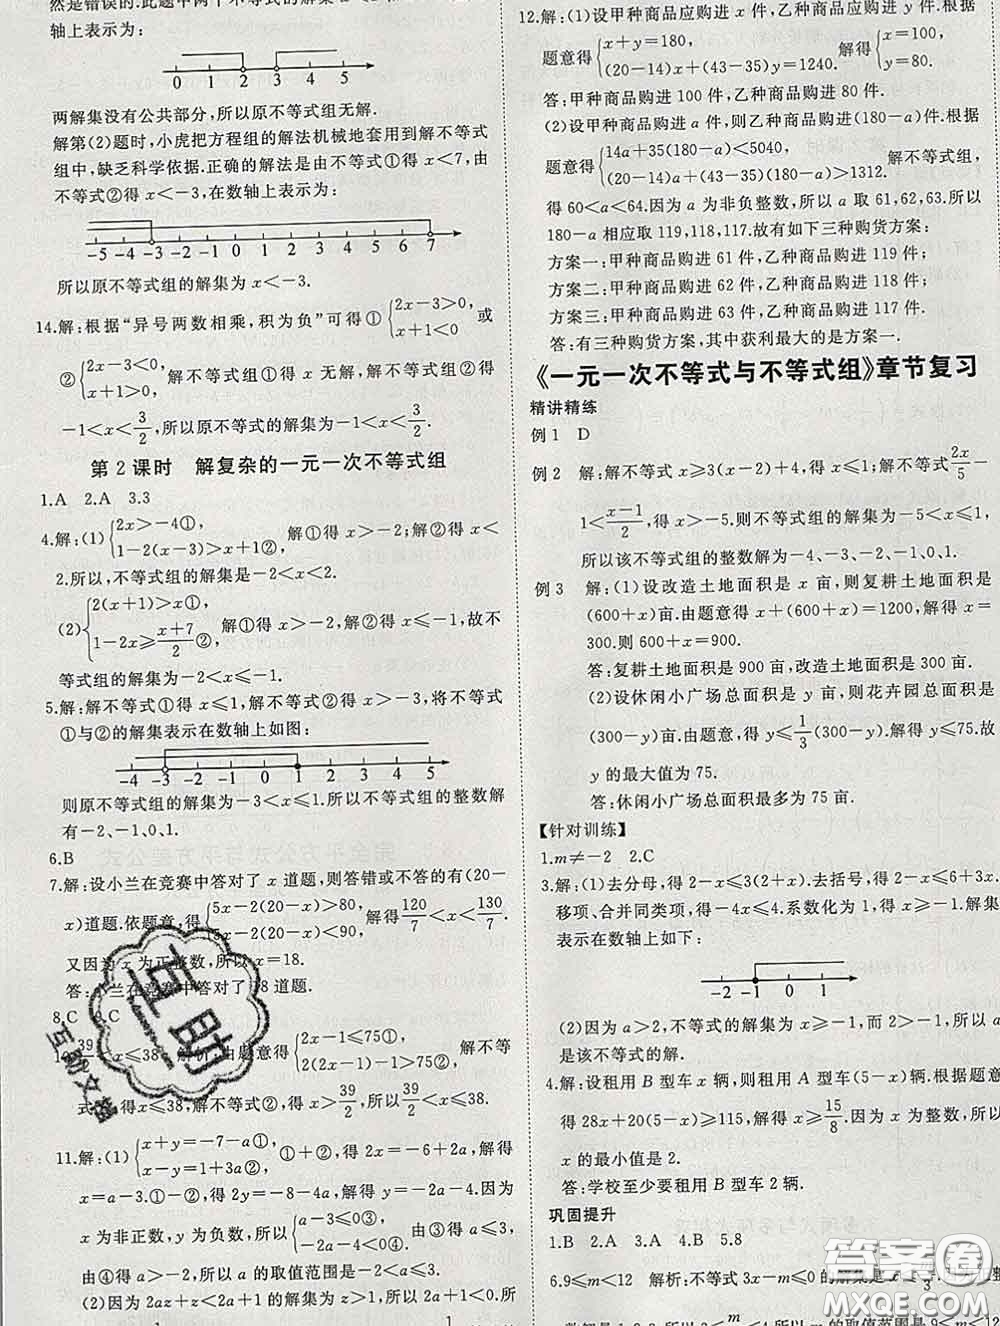 轴上表示为:
0 1 2 3 4 5
两解集没有公共部分,所以原不等式组无解.
解第(2)题时,小虎把方程组的解法机械地套用到解不等式
组中,缺乏科学依据.正确的解法是由不等式①得 x<7,由
不等式②得 x<-3,在数轴上表示为:
-5 -4 -3 -2 -1 0 1 2 3 4 5 6 7
所以原不等式组的解集为 x<-3.
14.解:根据“异号两数相乘,积为负”可得①{2x-3>0, x+1<0 或
②{2x-3<0, x+1>0. 解不等式组①得 x 无解,解不等式组②得
-1<x<3/2,所以原不等式的解集为-1<x<3/2.
第 2 课时 解复杂的一元一次不等式组
1.A 2.A 3.3
4.解:(1){2x>-4①, 1-2(x-3)>x+1②, 解①得 x>-2;解②得 x<
2.所以,不等式组的解集是-2<x<2.
(2){2(x+1)>x①, 1-2x≥(x+7)/2②, 解①得 x>-2,解②得 x≤-1,故不
等式组的解集为-2<x≤-1.
5.解:解不等式①得 x≤1,解不等式②得 x>-3,将不等式
①与②的解集表示在数轴上如图:
-4 -3 -2 -1 0 1 2 3 4 5
则原不等式组的解集为-3<x≤1.所以不等式组的整数解
有-2、-1、0、1.
6.B
7.解:设小兰在竞赛中答对了 x 道题,则答错或不答的有(20-
x)道题.依题意,得{5x-2(20-x)>80, 5x-2(20-x)<90, 解得120/7<x<130/7.
又因为 x 为正整数,所以 x=18.
答:小兰在竞赛中答对了 18 道题.
8.C 9.C
10.39/2<x≤38 解析:由题意得{2x-1≤75①, 2(2x-1)-1>75②, 解不等
式①得x≤38,解不等式②,得 x>39/2,所以39/2<x≤38.
11.解:(1){x+y=-7-a①, x-y=1+3a②, ①+②,得 2x=-6+2a,解得
x=a-3.①-②,得 2y=-8-4a,解得 y=-2a-4.因为
x 为非正数,y 为负数,所以{a-3≤0③, -2a-4<0④,
由③④得,所以 a 的取值范围是-2<a≤3.
(2)因为 2az+z<2a+1 的解集为 z>1,所以 2a+1<0.所
12.解:(1)设甲种商品应购进 x 件,乙种商品应购进 y 件.根据
题意得{x+y=180, (20-14)x+(43-35)y=1240. 解得{x=100, y=80.
答:甲种商品购进 100 件,乙种商品购进 80 件.
(2)设甲种商品购进 a 件,则乙种商品购进(180-a)件.根据
题意得{14a+35(180-a)<5040, (20-14)a+(43-35)(180-a)>1312. 解不等式组,
得 60<a<64.因为 a 为非负整数,所以 a 取 61,62,63.所以
180-a 相应取 119,118,117.故有如下三种购货方案:
方案一:甲种商品购进 61 件,乙种商品购进 119 件;
方案二:甲种商品购进 62 件,乙种商品购进 118 件;
方案三:甲种商品购进 63 件,乙种商品购进 117 件.
答:有三种购货方案,其中获利最大的是方案一.
《一元一次不等式与不等式组》章节复习
精讲精练
例 1 D
例 2 解:解不等式 x≥3(x-2)+4,得 x≤1;解不等式2x/5-
1<(x-1)/2,得 x>-5.则不等式组的解集为-5<x≤1,
所以该不等式组的整数解为-4、-3、-2、-1、0、1.
例 3 解:(1)设改造土地面积是 x 亩,则复耕土地面积是
(600+x)亩.由题意得 x+(600+x)=1200,解得 x=
300.则 600+x=900.
答:复耕土地面积是 900 亩,改造土地面积是 300 亩.
(2)设休闲小广场总面积是 y 亩,则花卉园总面积是
(300-y)亩.由题意,得 y≤1/3(300-y).解得 y≤75.故
y 的最大值为 75.
答:休闲小广场总面积最多为 75 亩.
【针对训练】
1.m≠-2 2.C
3.解:(1)去分母,得 2-x≤3(2+x).去括号,得 2-x≤6+3x.
移项、合并同类项,得-4x≤4.系数化为 1,得 x≥-1.解集
表示在数轴上如下:
-2 -1 0 1
(2)因为 a>2,不等式的解集为 x≥-1,而 2>-1,所以 a
是该不等式的解.
4.解:设租用 B 型车 x 辆,则租用 A 型车(5-x)辆.根据题意
得 28x+20(5-x)≥115,解得 x≥15/8.因为 x 为整数,所以
x 的最小值是 2.
答:学校至少要租用 B 型车 2 辆.
巩固提升
1.B 2.A 3.A 4.B 5.8
6.9≤m<12 解析:不等式 3x-m≤0 的解集是
互助
互助文档
答案圈
MXQE.COM